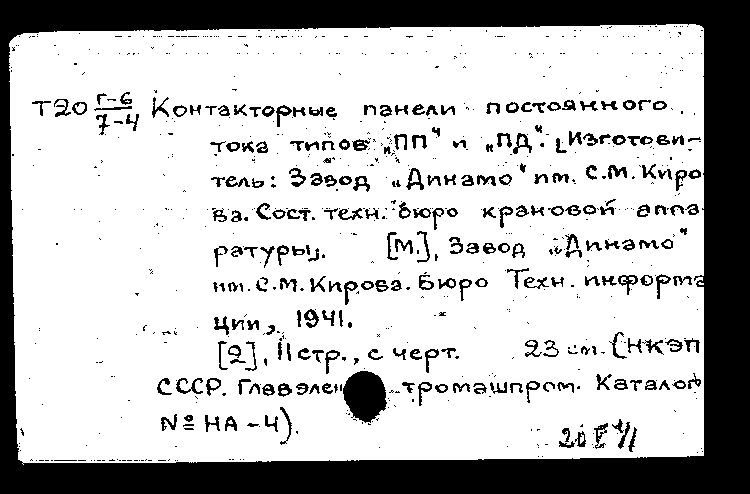 Т20 Г-6/7-4 Контакторные панели постоянного
тока типов „ПП" и „ПД". [Изготови-
тель: Завод „Динамо" им. С.М. Киро
ва. Сост. техн. бюро крановой аппа
ратуры]. [М.], Завод „Динамо"
им. С.М. Кирова. Бюро Техн. информа
ции, 1941.
[2], 11 стр., с черт. 23 см. (НКЭП
СССР. Главэлек тромашпром. Каталог
№ НА-4).